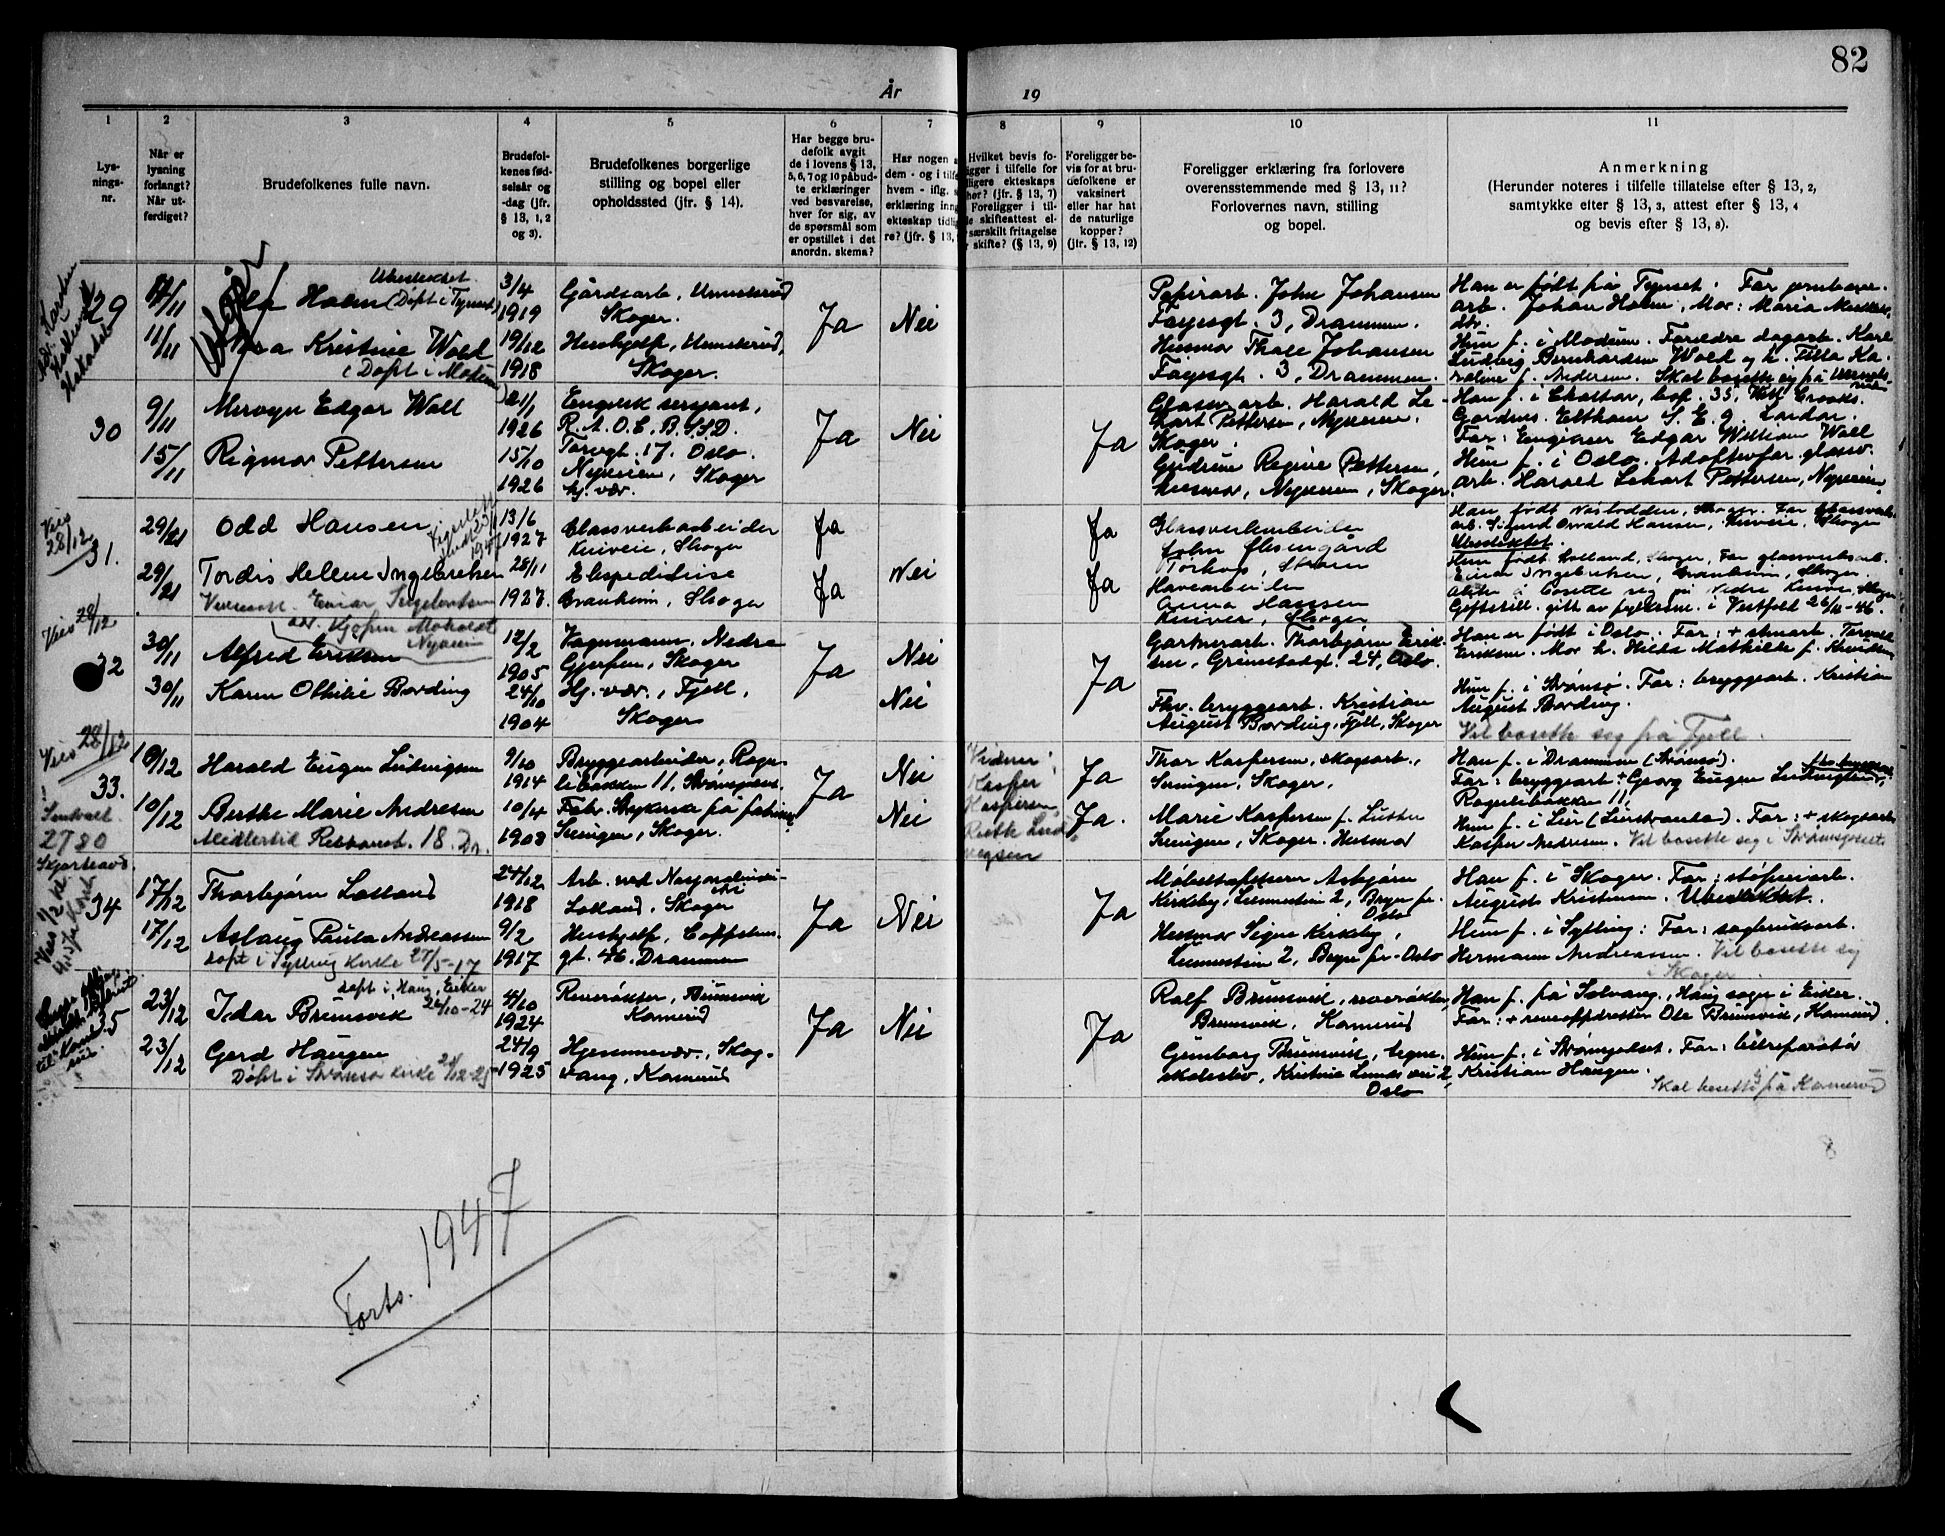 82
År
19
1
2
3
4
5
6
7
8
9
10
11
Lys-
nings-
nr.
Når er
lysning
forlangt?
Når ut-
ferdiget?
Brudefolkenes fulle navn.
Brudefol-
kenes fød-
selsår og
-dag (jfr.
§ 13, 1, 2
og 3).
Brudefolkenes borgerlige
stilling og bopel eller
opholdssted (jfr. § 14).
Har begge bru-
defolk avgit
de i lovens § 13,
5, 6, 7 og 10 påbud-
te erklæringer
ved besvarelse,
hver for sig, av
de spørsmål som
er opstillet i det
anordn. skema?
Har nogen a
dem - og i tilfe
hvem - iflg. s
erklæring inng
ekteskap tidli
re? (jfr. § 13,
Hvilket bevis fo-
igger i tilfelle for
ligere ekteskaps
her? (jfr. § 13, 7)
Foreligger i til-
e skifteattest el-
særskilt fritagelse
skifte? (§ 13, 9)
Foreligger be-
vis for at bru-
defolkene er
vaksinert
eller har hat
de naturlige
kopper?
(jfr. § 13, 12)
Foreligger erklæring fra forlovere
overensstemmende med § 13, 11?
Forlovernes navn, stilling
og bopel.
Anmerkning
(Herunder noteres i tilfelle tillatelse efter § 13, 2,
samtykke efter § 13, 3, attest efter § 13, 4
og bevis efter § 13, 8).
29
11/11
Ubeslektet
Holm (Døpt i Tynset)
Kristine Wold
(Døpt i Modum)
3/4
1919
19/12
1918
Gårdsarb., Unnelsrud
Skoger.
Hushjelp, Unnelsrud,
Skoger.
Ja
Nei
Papirarb. John Johansen
Fayesgt. 3, Drammen.
Husmor Thale Johansen
Fayesgt. 3, Drammen.
Han er født på Tynset. Far jernbane-
arb. Johan Holm, Mor: Maria
Hun f. i Modum. Foreldre dagarb. Karl
Ludvig Bernhardsen Wold og h. Tilla Ka-
roline f. Andersen. Skal bosette sig på
30
9/11
15/11
Mervyn Edgar Wall
Rigmor Pettersen
21/1
1926
15/10
1926
Engelsk sersjant,
R.A.O.C. B.S.D.
Torvgt. 17. Oslo.
Nyveien, Skoger
hj. vær.
Ja
Nei
Ja
Glassv. arb. Harald Le-
hart Pettersen, Nyveien,
Skoger.
Gudrun Regine Pettersen,
husmor, Nyveien, Skoger.
Gardens. Eltham S.E.9. London.
Far: Engineer Edgar William Wall
Hun f. i Oslo. Adoptivfar glassv.
arb. Harald Lehart Pettersen, Nyveien
Viet
28/12
31.
29/11
29/11
Odd Hansen
Tordis Hellene Ingebretsen
Einar Ingebretsen
adr. Kjøpm. Moholdt
Nyveien
13/6
1927
28/11
1927.
Glassverksarbeider
Kniveie, Skoger
Ekspeditrise
Granheim, Skoger
Ja
Ja
Nei
Ja
Ja
Glassverkarbeider
Havearbeider
Anna Hansen
Kniveie, Skoger
Han født Nesbodden, Skoger. Far glassverks-
arb. Sigurd Osvald Hansen, Kniveie, Skoger
Ubeslektet.
Hun født Holland, Skoger, Far glassverksarb.
Einar Ingebretsen, Granheim, Skoger.
Akter å bosette seg på Nedre Kniveie, Skoger
Giftetill. gitt av fylkesm. i Vestfold 26/11-46.
Viet 28/12
32
30/11
30/11
Alfred Eriksen
Karen Othilie Børding
12/2
1905
24/10
1904
Vognmann. Nedre
Gjerpen, Skoger
Hj. vær., Fjell,
Skoger
Ja
Nei
Nei
Ja
Gartnerarb. Thorbjørn Erik-
sen, Grimstadgt. 24, Oslo.
Fhv. bryggearb. Kristian
August Børding, Fjell, Skoger
Han er født i Oslo. Far: + stuearb. Torvald
Eriksen. Mor h. Hilda Mathilde f. Knudsen
Hun f. i Strømsø. Far: bryggearb. Kristian
August Børding.
Vil bosette sig på Fjell.
Viet 28/12
33.
10/12
10/12
Harald Eugen Ludvigsen
Berthe Marie Andresen
Midlertid Rebbansgt. 18. Dr.
9/10
1914
10/4
1908
Bryggearbeider, Rogne-
libakken 11, Strømsgodset.
Fabr. Strykerske på fabrikk
Svingen, Skoger.
Ja
Nei
Nei
Kasper
Kaspersen
Ja
Ja.
Thor Kaspersen, skogsarb.,
Svingen, Skoger,
Marie Kaspersen f. Luster
Svingen, Skoger. Husmor
Han f. i Drammen (Strømsø).
Far: bryggearb. + Georg Eugen Ludvigsen,
Rognelibakken 11.
Hun f. i Lier (Lierstranda). Far: + skogsarb.
Kasper Andresen. Vil bosette seg i Strømsgodset.
34
17/12
17/12
Thorbjørn Lolland
Aslaug Paula Andreassen
døpt i Sylling kirke 27/5-17
24/12
1918
9/2
1917
Arb. ved Nasjonalindu-
stri
Lolland, Skoger
Hushjelp, Coffeldts-
gt. 46. Drammen
Ja
Nei
Ja
Møbeltapetserer Asbjørn
Kirkeby, Lunnestien 2, Bryn pr.
Oslo
Husmor Signe Kirkeby,
Lunnestien 2, Bryn pr. Oslo
Han f. i Skoger. Far: støperiarb.
August Kristensen. Ubeslektet.
Hun f. i Sylling. Far: sagbruksarb.
Hermann Andreassen. Vil bosette sig
i Skoger
35
23/12
23/12
døpt i Haug, Eiker
Idar Brunsvik 26/10-24
Gerd Haugen
Døpt i Strømsø kirke 26/12-25
4/10
1924
24/9
1925
Reverøkter, Brunsvik
Konnerud
Hjemmevær., Skog-
vang, Konnerud
Ja
Nei
Ja
Rolf Brunsvik, reverøkter,
Brunsvik, Konnerud
Gunborg Brunsvik, tegne-
skoleelev, Kristine Lunds vei 2,
Oslo
Han f. på Solvang, Haug sogn i Eiker.
Far: + reveoppdretter Ole Brunsvik, Konnerud.
Hun f. i Strømsgodset. Far: bilreparatør
Kristian Haugen.
Skal bosette sig på Konnerud
Forts. 1947